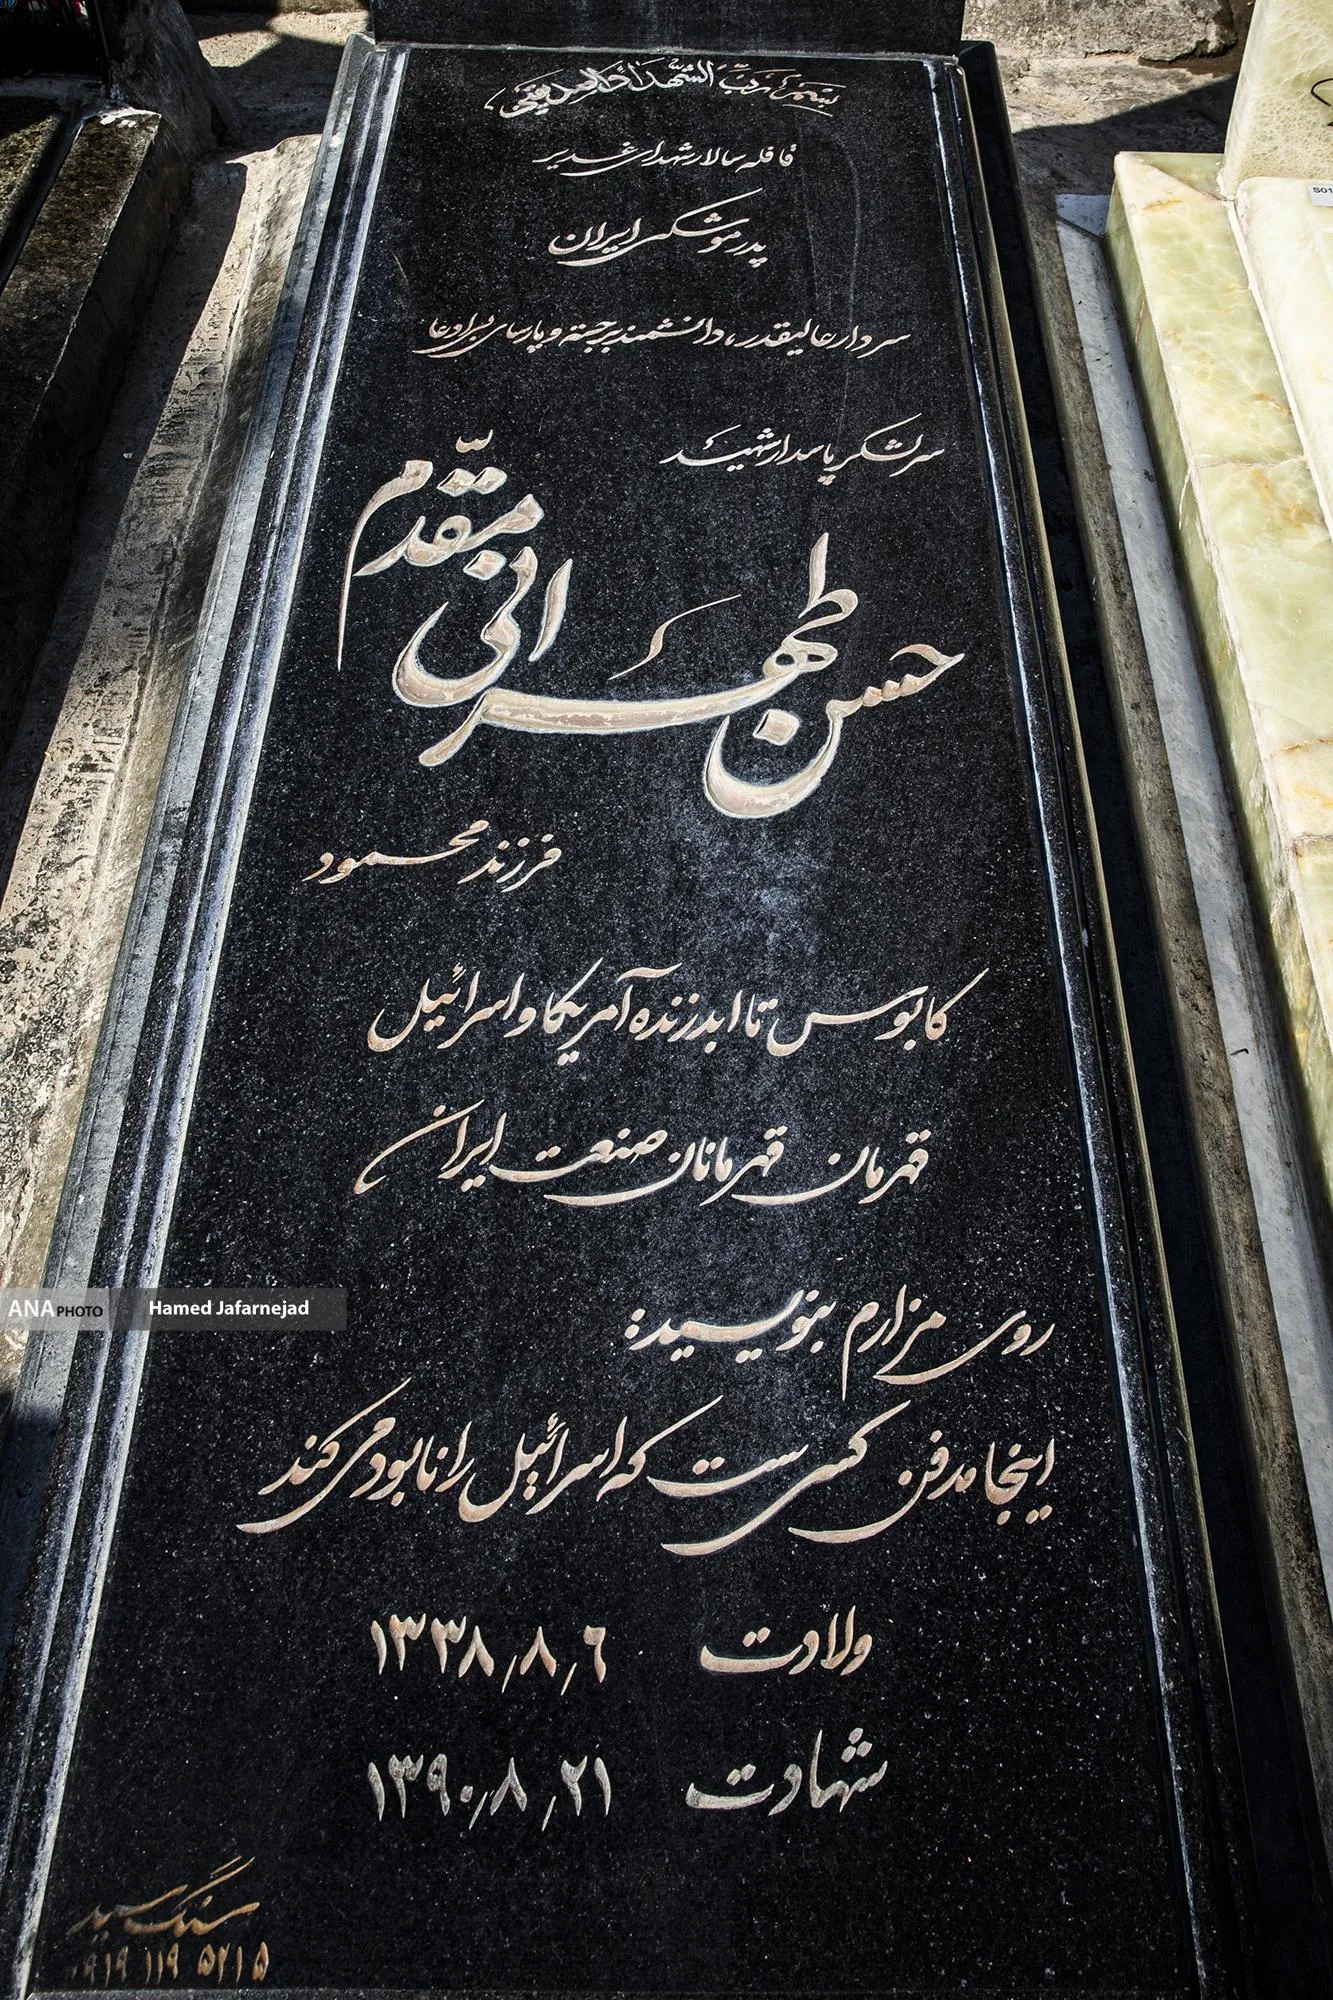 بسم رب الشهدا و الصدیقین
قافله سالار شهدای غدیر
پدر موشکی ایران
سردار عالیقدر، دانشمند برجسته و پارسای بی‌ادعا
سرلشکر پاسدار شهید
حسن طهرانی مقدّم
فرزند محمود
کابوس تا ابد زنده آمریکا و اسرائیل
قهرمان قهرمانان صنعت ایران
روی مزارم بنویسید:
اینجا مدفن کسی ست که اسرائیل را نابود می کند
ولادت ۱۳۳۸٫۸٫۶
شهادت ۱۳۹۰٫۸٫۲۱
سنگ سید
۰۹۱۹ ۱۱۹ ۵۲۱۵
ANA PHOTO Hamed Jafarnejad
S01